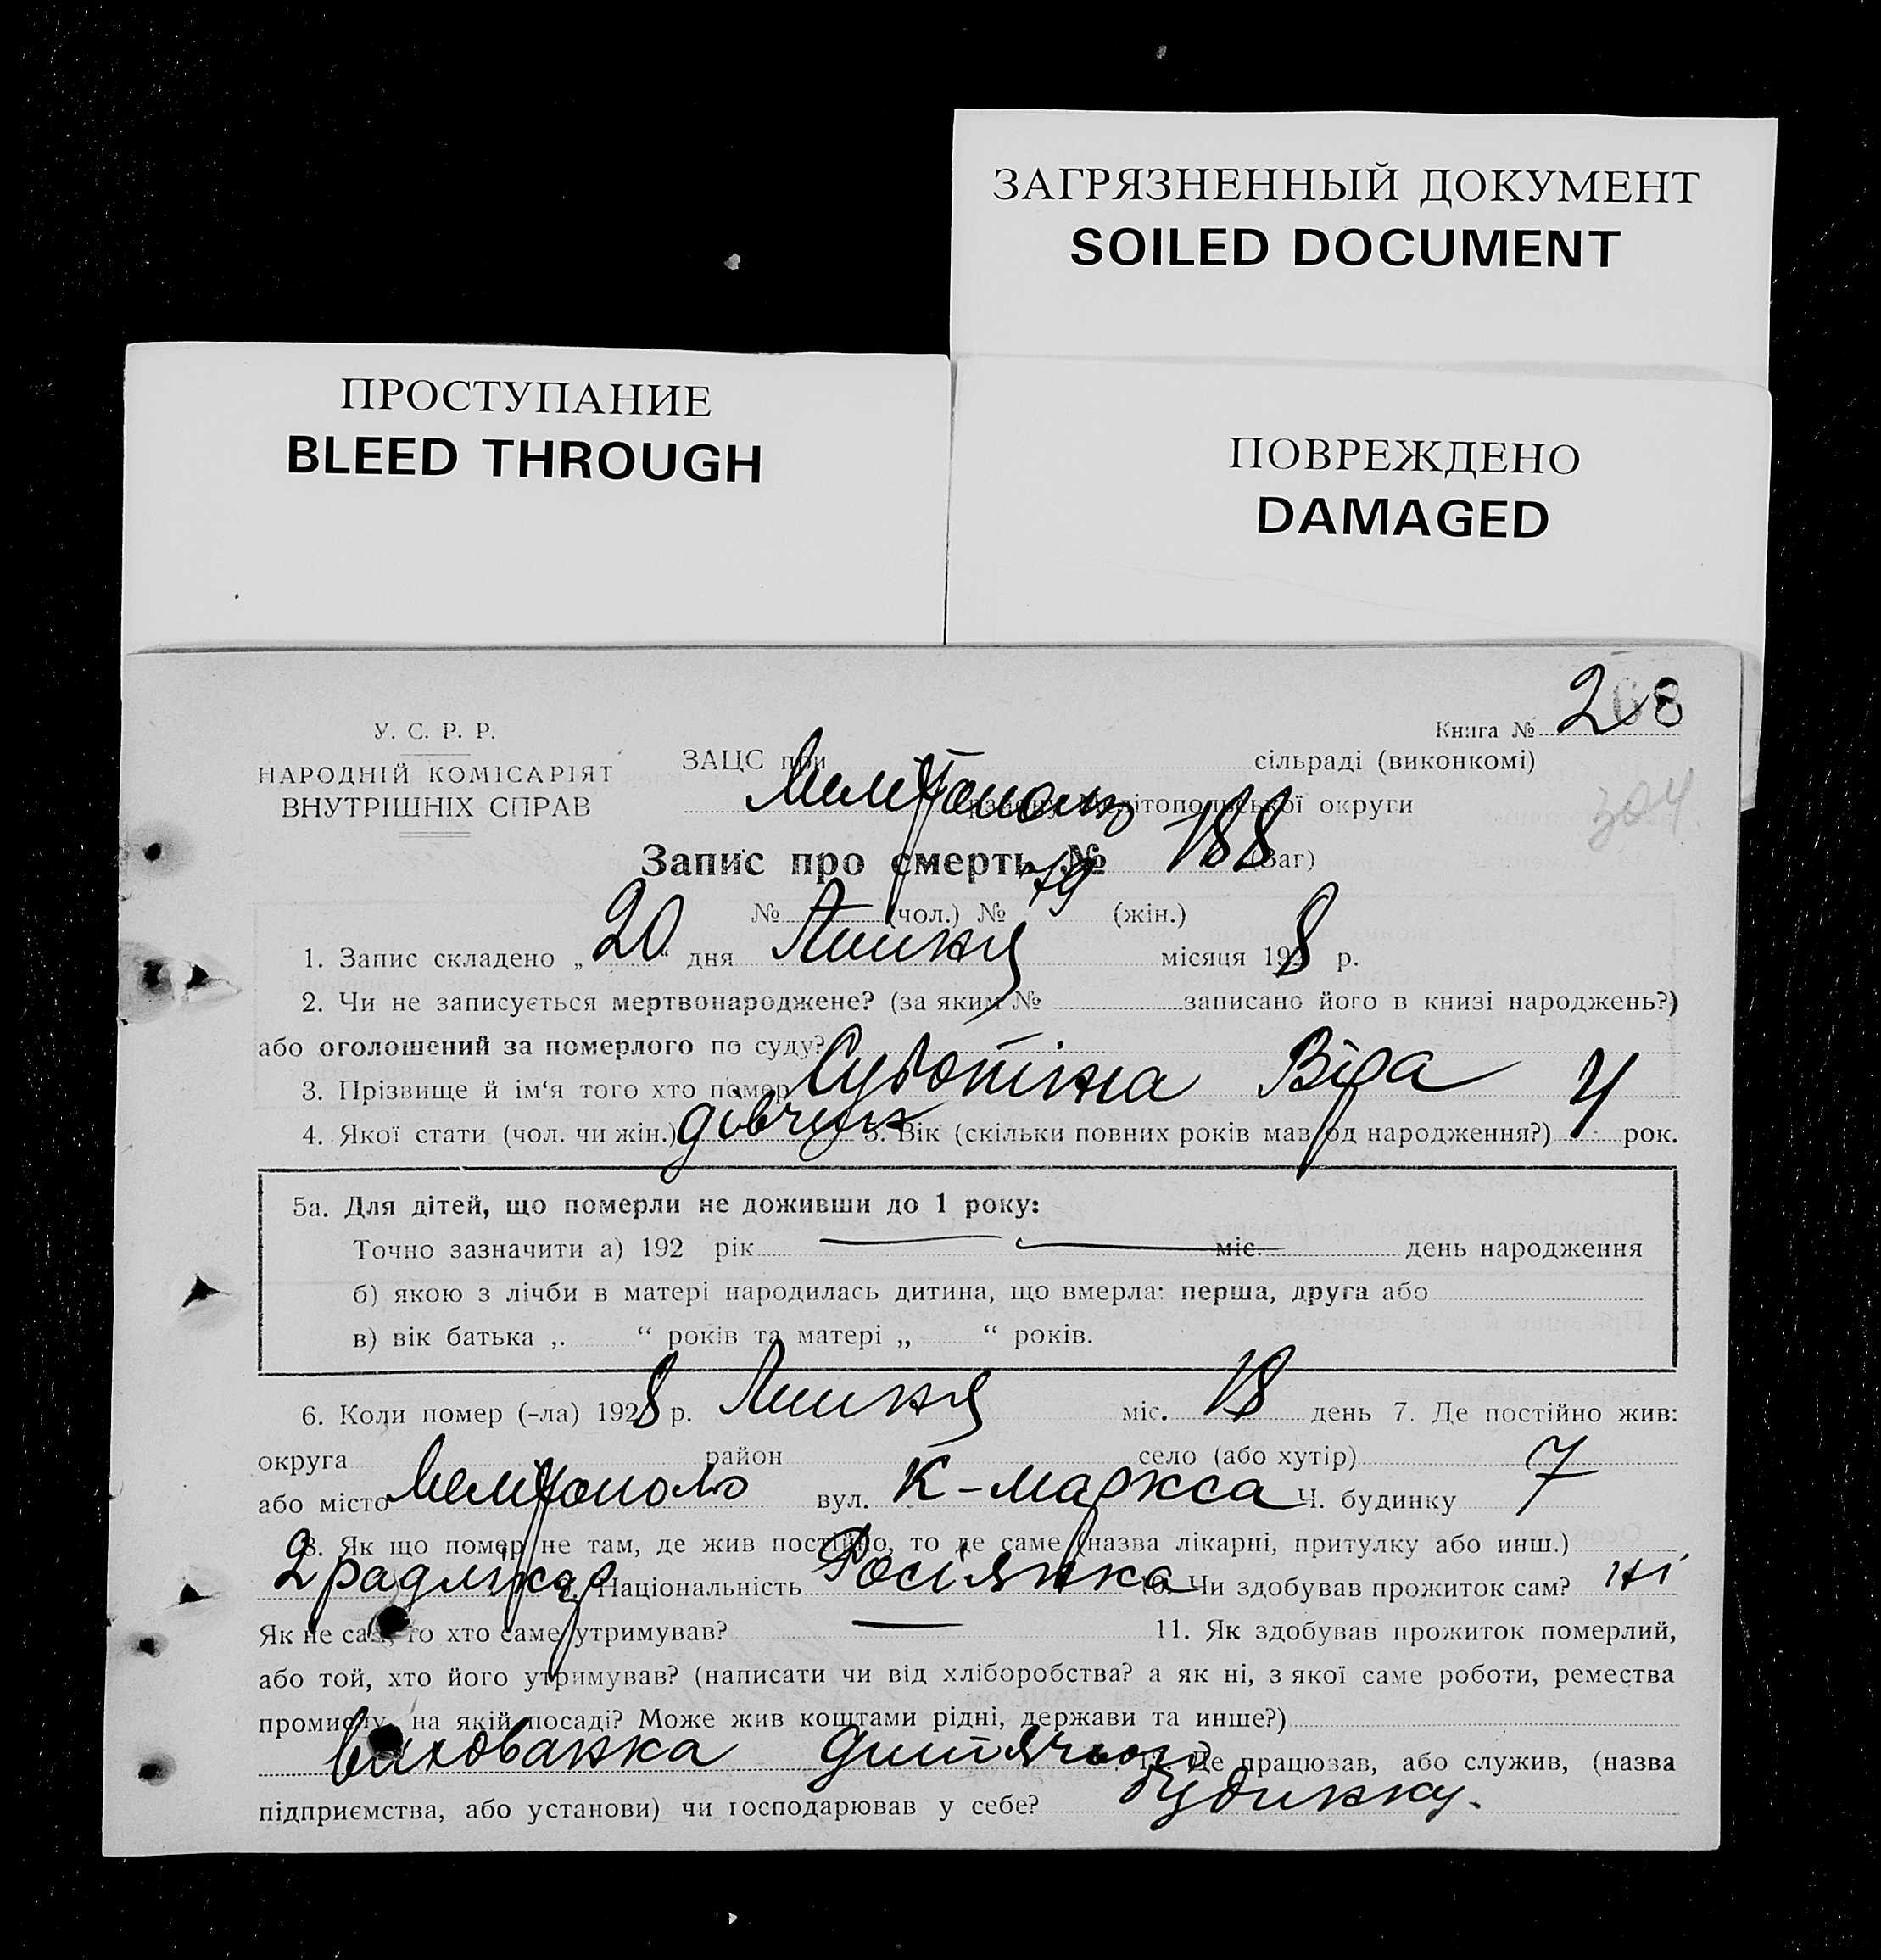 ЗАГРЯЗНЕННЫЙ ДОКУМЕНТ
SOILED DOCUMENT
ПРОСТУПАНИЕ
BLEED THROUGH
ПОВРЕЖДЕНО
DAMAGED
У. С. Р. Р.
НАРОДНІЙ КОМІСАРІЯТ
ВНУТРІШНІХ СПРАВ
Книга № 2
68
304
ЗАЦС при сільраді (виконкомі)
Мелітополь району Мелітопольської округи
Запис про смерть № 188 (Заг)
№ (чол.) № 79 (жін.)
1. Запис складено „20“ дня Липня місяця 1928 р.
2. Чи не записується мертвонароджене? (за яким № записано його в книзі народжень?)
або оголошений за померлого по суду?
3. Прізвище й ім‘я того хто помер Суботіна Віра
4. Якої статі (чол. чи жін.) дівчина 5. Вік (скільки повних років мав од народження?) 4 рок.
5а. Для дітей, що померли не доживши до 1 року:
Точно зазначити а) 192 рік міс. день народження
б) якою з лічби в матері народилась дитина, що вмерла: перша, друга або
в) вік батька „ “ років та матері „ “ років.
6. Коли помер (-ла) 1928 р. Липня міс. 18 день 7. Де постійно жив:
округа район село (або хутір)
або місто Мелітополь вул. К-Маркса Ч. будинку 7
8. Як що помер не там, де жив постійно, то де саме (назва лікарні, притулку або инш.)
2 радлікар 9. Національність Росіянка 10. Чи здобував прожиток сам? ні
Як не сам, то хто саме утримував? — 11. Як здобував прожиток померлий,
або той, хто його утримував? (написати чи від хліборобства? а як ні, з якої саме роботи, ремества
промислу, на якій посаді? Може жив коштами рідні, держави та инше?)
Вихованка дитячого 12. Де працював, або служив, (назва
будинку.
підприємства, або установи) чи господарював у себе?